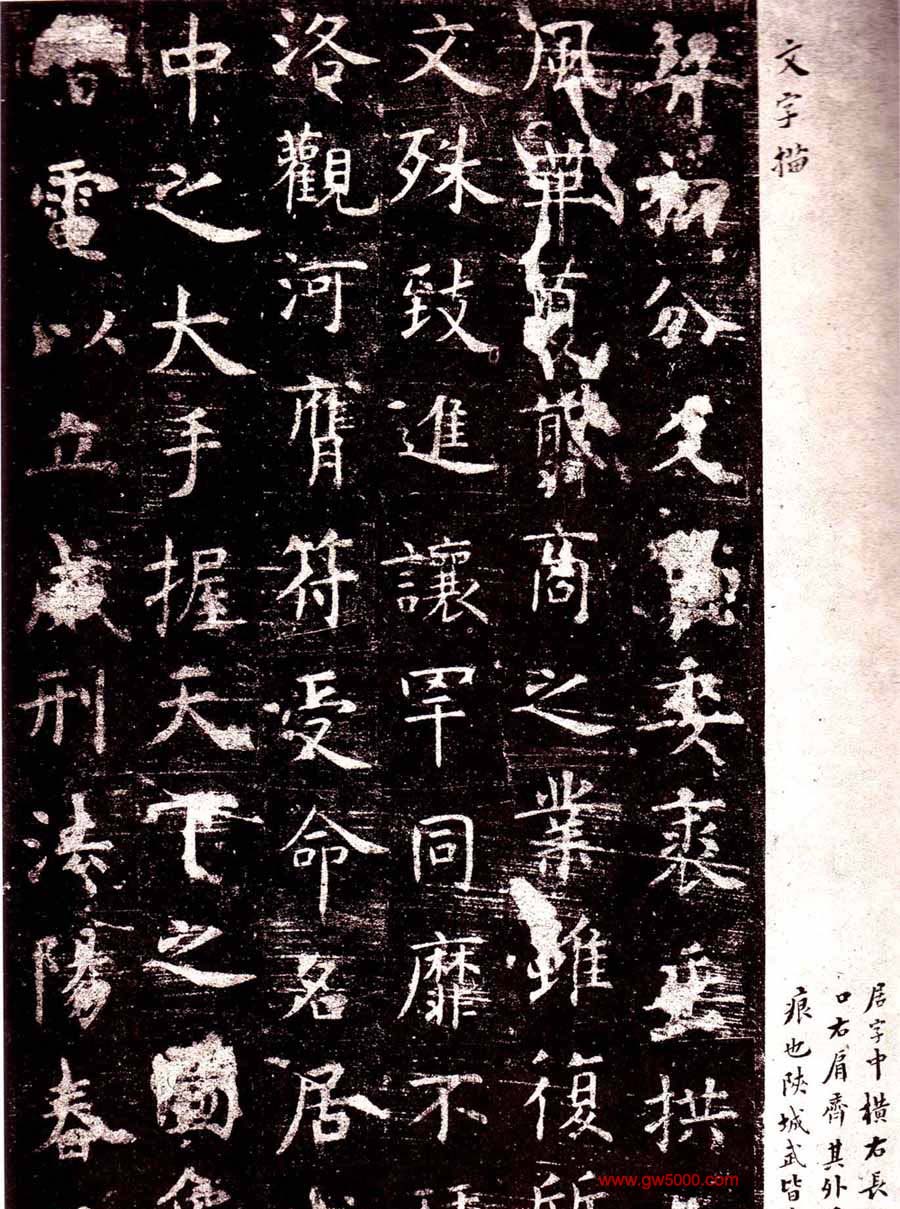 文字描
居字中橫右長
口右肩齊其外
痕也陝城武皆
契初分爻委裘垂拱
風革夏翦商之業雖復質
文殊致進讓罕同靡不
洛觀河膺符受命名居
中之大手握天下之圖象
電以立威刑法陽春
www.gw5000.com